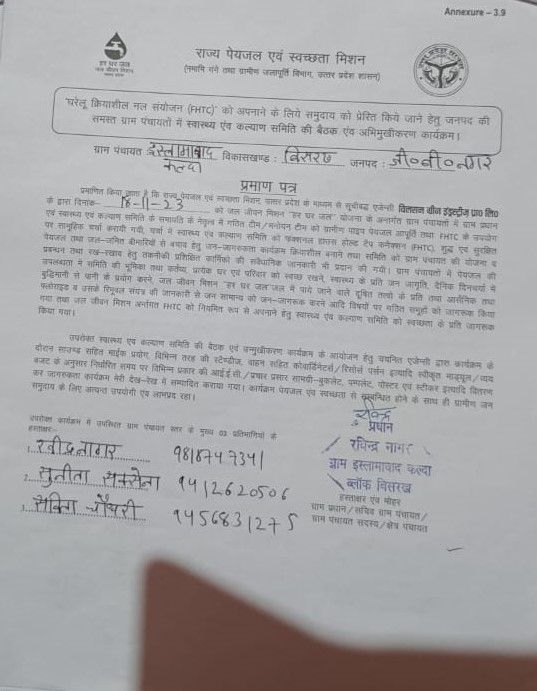 Annexure – 3.9
हर घर जल
जल जीवन मिशन
राज्य पेयजल एवं स्वच्छता मिशन
(नमामि गंगे तथा ग्रामीण जलापूर्ति विभाग, उत्तर प्रदेश शासन)
'घरेलू क्रियाशील नल संयोजन (FHTC)' को अपनाने के लिये समुदाय को प्रेरित किये जाने हेतु जनपद की
समस्त ग्राम पंचायतों में स्वास्थ्य एंव कल्याण समिति की बैठक एंव अभिमुखीकरण कार्यक्रम।
ग्राम पंचायत इस्लामाबाद कल्दा विकासखण्ड : बिसरख जनपद : जी०बी०नगर
प्रमाण पत्र
प्रमाणित किया जाता है कि राज्य पेयजल एवं स्वच्छता मिशन, उत्तर प्रदेश के माध्यम से सूचीबद्ध एजेन्सी विलसन ग्रीन इंडस्ट्रीज़ प्रा० लि०
के द्वारा दिनांक- 18-11-23 को जल जीवन मिशन "हर घर जल" योजना के अन्तर्गत ग्राम पंचायतों में ग्राम प्रधान
एवं स्वास्थ्य एंव कल्याण समिति के सभापति के नेतृत्व में गठित टीम/मनोनयन टीम को ग्रामीण पाइप पेयजल आपूर्ति तथा FHTC के उपयोग
पर सामूहिक चर्चा करायी गयी, चर्चा में स्वास्थ्य एंव कल्याण समिति को फंक्शनल हाउस होल्ड टैप कनेक्शन (FHTC), शुद्ध एंव सुरक्षित
पेयजल तथा जल-जनित बीमारियों से बचाव हेतु जन-जागरूकता कार्यक्रम क्रियाशील बनाने तथा समिति को ग्राम पंचायत की योजना व
प्रबन्धन तथा रख-रखाव हेतु तकनीकी प्रशिक्षित कार्मिकों की संवैधानिक जानकारी भी प्रदान की गयी। ग्राम पंचायतों में पेयजल की
उपलब्धता में समिति की भूमिका तथा कर्तव्य, प्रत्येक घर एवं परिवार को स्वच्छ रखने, स्वास्थ्य के प्रति जन जागृति, दैनिक दिनचर्या में
बुद्धिमानी से पानी के प्रयोग करने, जल जीवन मिशन "हर घर जल" जल में पाये जाने वाले दूषित तत्वों के प्रति तथा आर्सेनिक तथा
फ्लोराइड व उसके रिमूवल संयत्र की जानकारी से जन सामान्य को जन-जागरूक करने आदि विषयों पर गठित समूहों को जागरूक किया
गया तथा जल जीवन मिशन अर्न्तगत FHTC को नियमित रूप से अपनाने हेतु स्वास्थ्य एंव कल्याण समिति को स्वच्छता के प्रति जागरूक
किया गया।
उपरोक्त स्वास्थ्य एंव कल्याण समिति की बैठक एवं उन्मुखीकरण कार्यक्रम के आयोजन हेतु चयनित एजेन्सी द्वारा कार्यक्रम के
दौरान साउण्ड सहित माईक प्रयोग, विभिन्न तरह की स्टेण्डीज, वाहन सहित कोवार्डिनेटर्स/रिसोर्स पर्सन इत्यादि स्वीकृत माड्यूल/व्यय
बजट के अनुसार निर्धारित समय पर विभिन्न प्रकार की आई.ई.सी./प्रचार प्रसार सामग्री-बुकलेट, पम्पलेट, पोस्टर एवं स्टीकर इत्यादि वितरण
कर जागरूकता कार्यक्रम मेरी देख-रेख में सम्पादित कराया गया। कार्यक्रम पेयजल एवं स्वच्छता से सम्बन्धित होने के साथ ही ग्रामीण जन
समुदाय के लिए अत्यन्त उपयोगी एंव लाभप्रद रहा।
उपरोक्त कार्यक्रम में उपस्थित ग्राम पंचायत स्तर के मुख्य 03 प्रतिभागियों के
हस्ताक्षर:-
1. रवीन्द्र नागर 9818747341
2. सुनीता सक्सेना 9412620506
3. सविता चौधरी 9456831275
रविन्द्र
प्रधान
रविन्द्र नागर
ग्राम इस्लामाबाद कल्दा
ब्लॉक बिसरख
हस्ताक्षर एंव मोहर
ग्राम प्रधान/सचिव ग्राम पंचायत/
ग्राम पंचायत सदस्य/क्षेत्र पंचायत